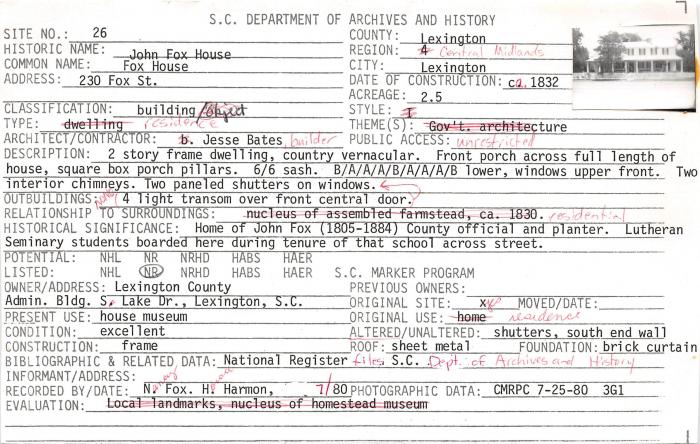 S.C. DEPARTMENT OF ARCHIVES AND HISTORY
SITE NO.: 26 COUNTY: Lexington
HISTORIC NAME: John Fox House REGION: 4 Central Midlands
COMMON NAME: Fox House CITY: Lexington
ADDRESS: 230 Fox St. DATE OF CONSTRUCTION: ca. 1832
ACREAGE: 2.5
CLASSIFICATION: building/object STYLE: I
TYPE: dwelling residence THEME(S): Gov't. architecture
ARCHITECT/CONTRACTOR: b. Jesse Bates, builder PUBLIC ACCESS: unrestricted
DESCRIPTION: 2 story frame dwelling, country vernacular. Front porch across full length of
house, square box porch pillars. 6/6 sash. B/A/A/A/B/A/A/A/B lower, windows upper front. Two
interior chimneys. Two paneled shutters on windows.
OUTBUILDINGS: none 4 light transom over front central door.
RELATIONSHIP TO SURROUNDINGS: nucleus of assembled farmstead, ca. 1830. residential
HISTORICAL SIGNIFICANCE: Home of John Fox (1805-1884) County official and planter. Lutheran
Seminary students boarded here during tenure of that school across street.
POTENTIAL: NHL NR NRHD HABS HAER
LISTED: NHL NR NRHD HABS HAER S.C. MARKER PROGRAM
OWNER/ADDRESS: Lexington County PREVIOUS OWNERS:
Admin. Bldg. S. Lake Dr., Lexington, S.C. ORIGINAL SITE: x MOVED/DATE:
PRESENT USE: house museum ORIGINAL USE: home residence
CONDITION: excellent ALTERED/UNALTERED: shutters, south end wall
CONSTRUCTION: frame ROOF: sheet metal FOUNDATION: brick curtain
BIBLIOGRAPHIC & RELATED DATA: National Register files, S.C. Dept. of Archives and History
INFORMANT/ADDRESS:
RECORDED BY/DATE: N. Fox. H. Harmon, 7/80 PHOTOGRAPHIC DATA: CMRPC 7-25-80 3G1
EVALUATION: Local landmarks, nucleus of homestead museum